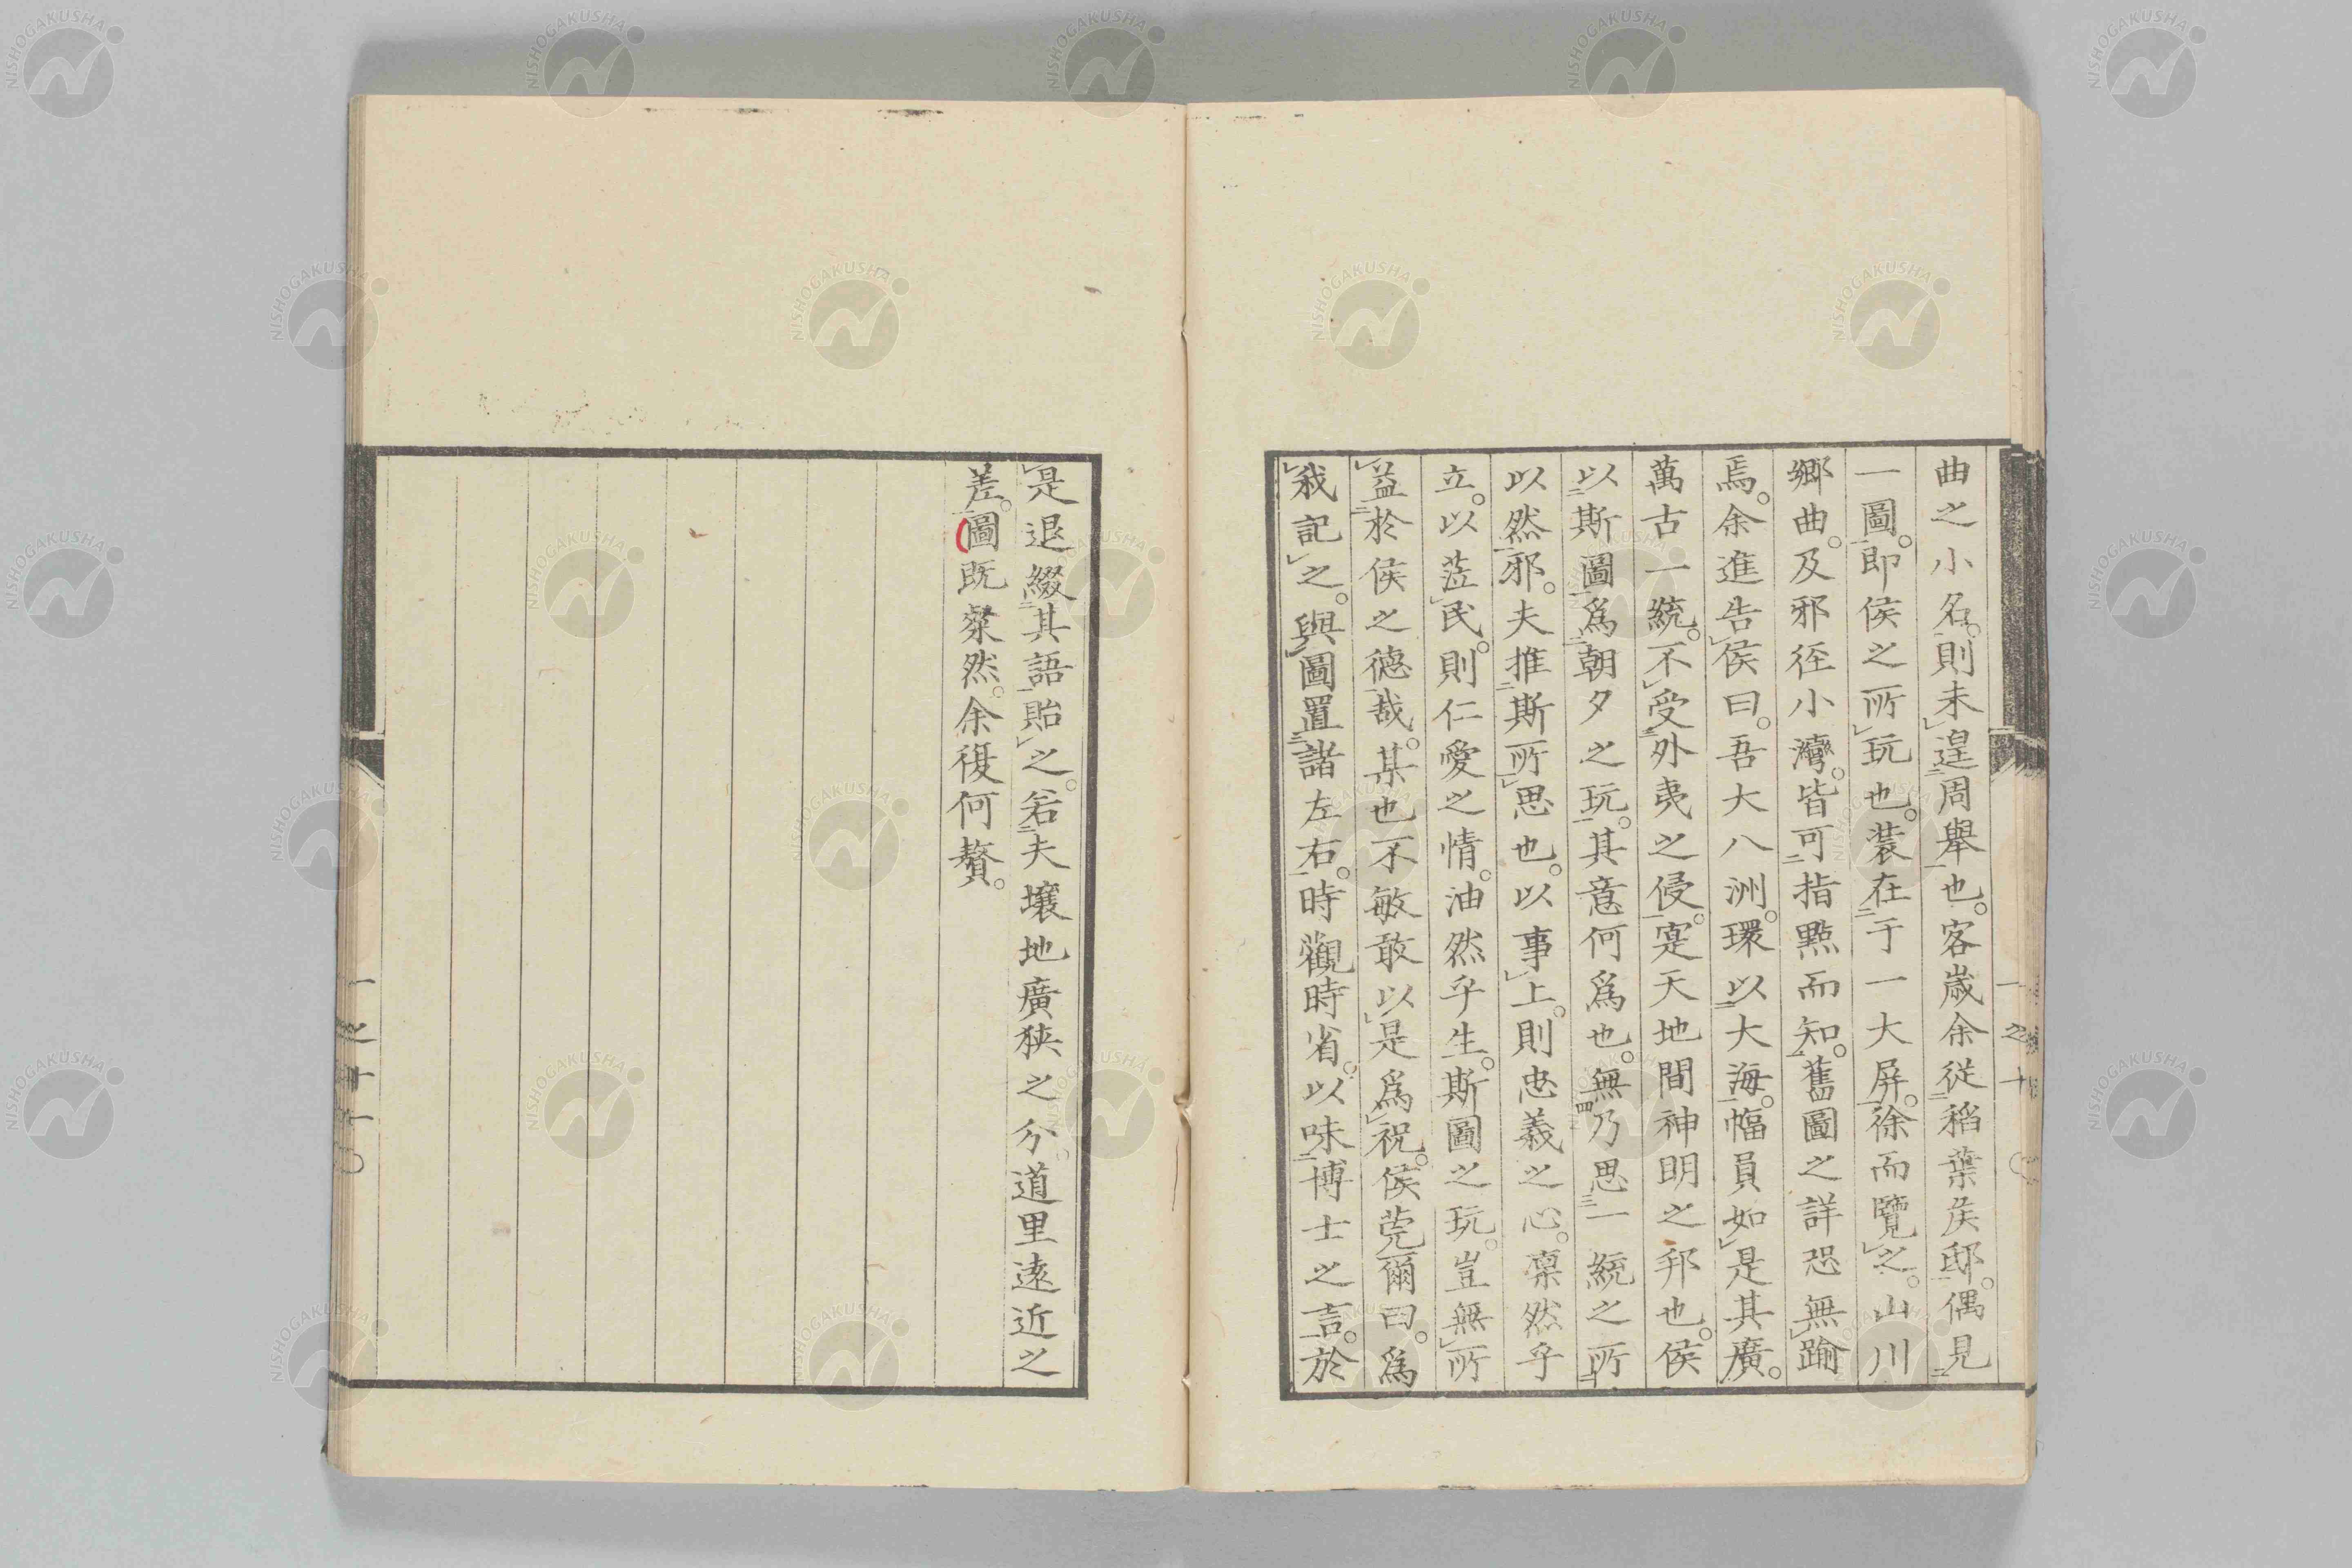 曲之小名。則未遑周舉也。客歳余從稻葉矦邸。偶見
一圖。即侯之所玩也。裝在于一大屏。徐而覽之。山川
郷曲。及邪径小灣。皆可指點而知。舊圖之詳恐無踰
焉。余進告侯曰。吾大八洲。環以大海。幅員如是其廣。
萬古一統。不受外夷之侵。寔天地間神明之邦也。侯
以斯圖爲朝夕之玩。其意何爲也。無乃思一統之所
以然邪。夫推斯所思也。以事上。則忠義之心。凛然乎
立。以蒞民。則仁愛之情。油然乎生。斯圖之玩。豈無所
益於侯之德哉。某也不敏敢以是爲祝。侯莞爾曰。爲
我記之。與圖置諸左右。時觀時省。以味博士之言。於
是退綴其語貽之。若夫壤地廣狭之分道里遠近之
差。圖既粲然。余復何贅。
NISHOGAKUSHA